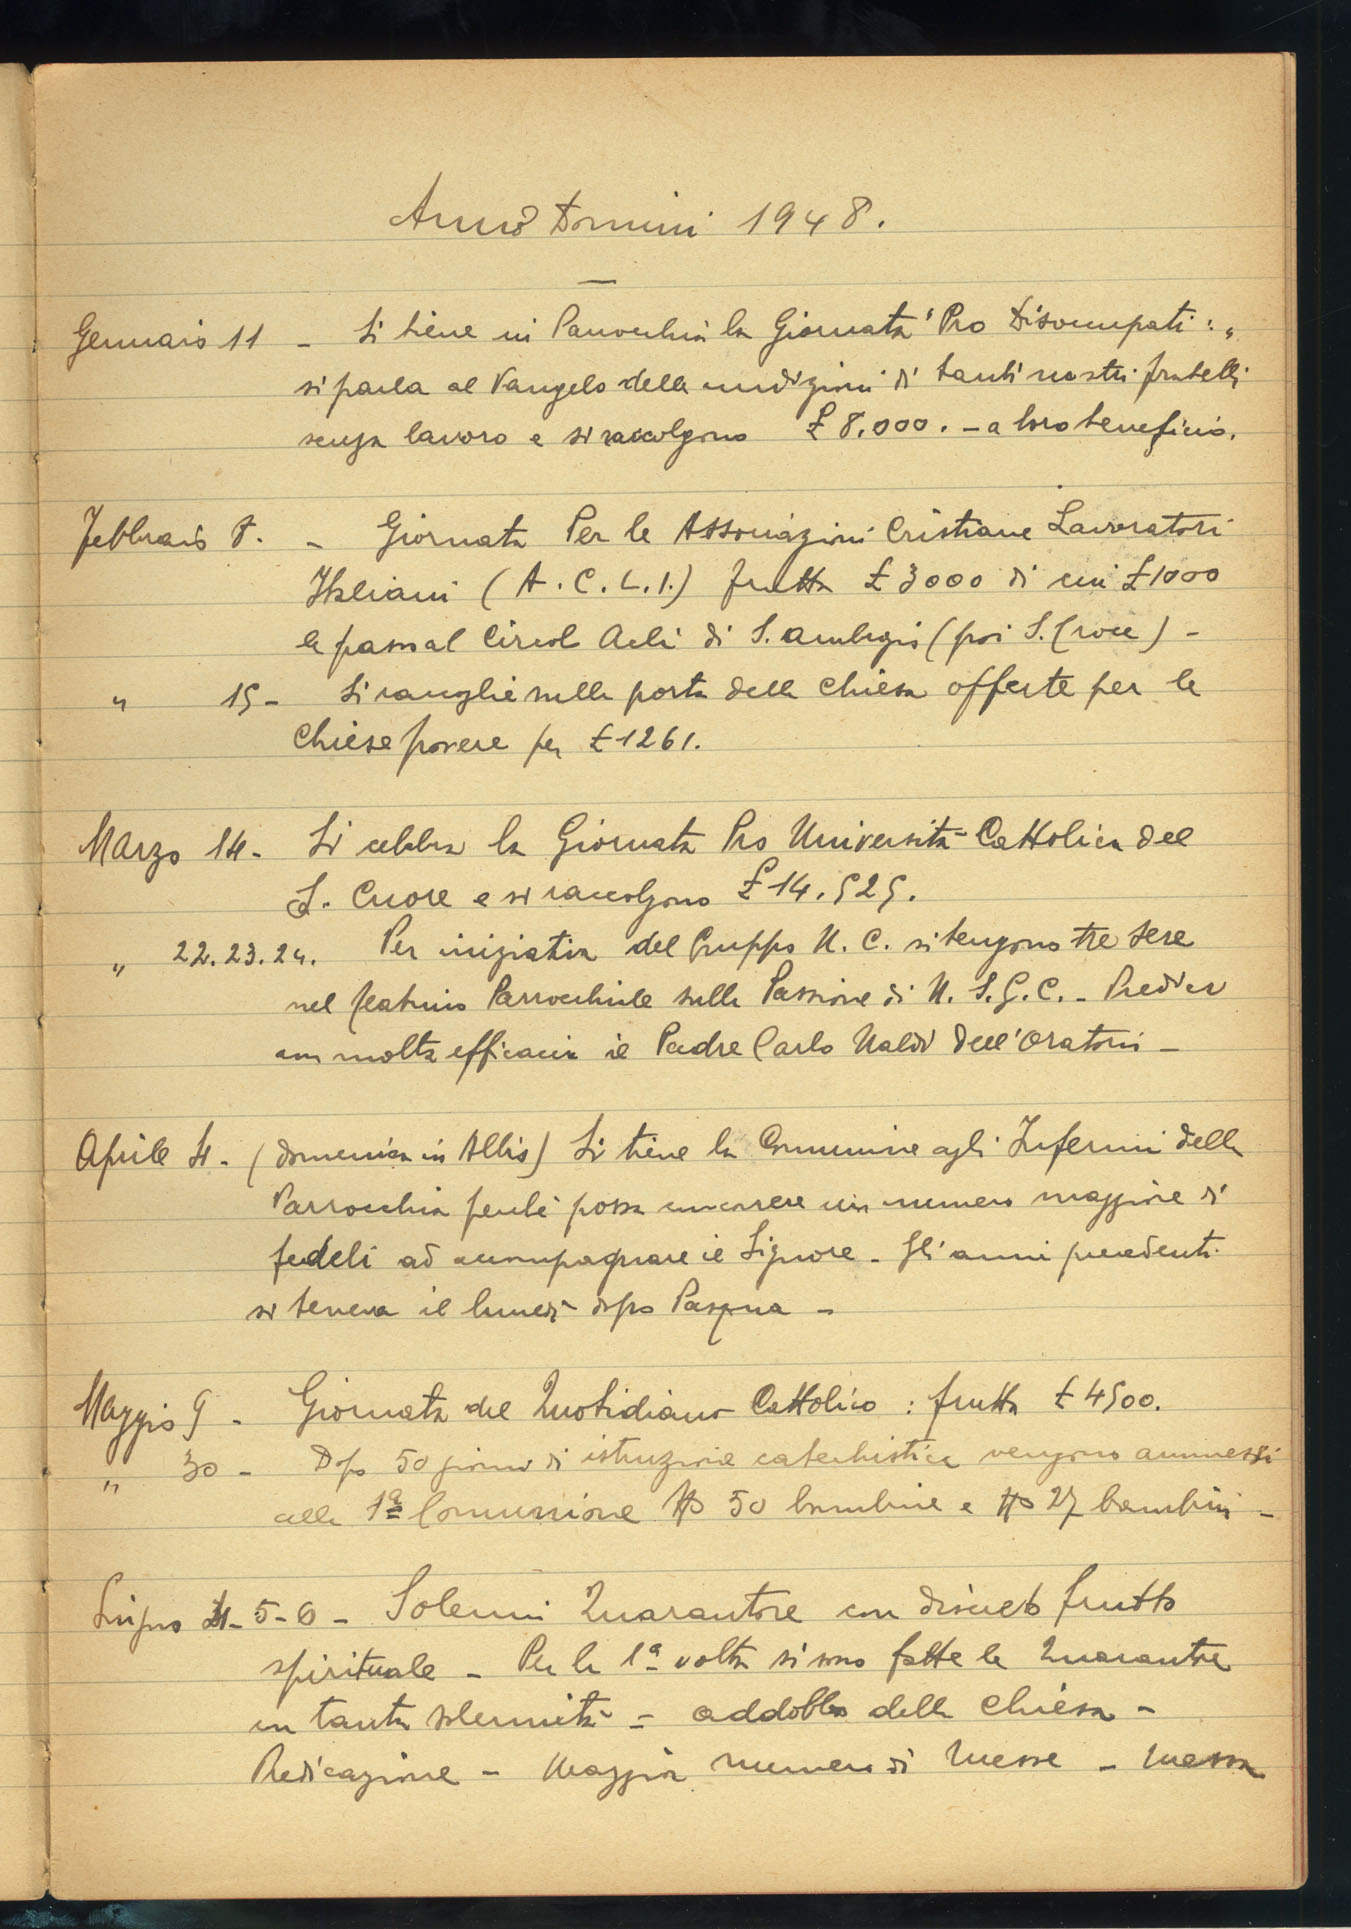 Anno Domini 1948.
Gennaio 11 - Si tiene in Parrocchia la Giornata "Pro Disoccupati:"
si parla al Vangelo delle condizioni di tanti nostri fratelli
senza lavoro e si raccolgono £ 8.000. - a loro beneficio.
Febbraio 8. - Giornata Per le Associazioni Cristiane Lavoratori
Italiani (A.C.L.I.) frutta £ 3000 di cui £ 1000
le passa al Circolo Acli di S. Ambrogio (poi S. Croce) -
" 15 - Si raccoglie sulla porta della Chiesa offerte per le
Chiese povere per £ 1261.
Marzo 14 - Si celebra la Giornata Pro Università Cattolica del
S. Cuore e si raccolgono £ 14.525.
" 22.23.24. Per iniziativa del Gruppo U.C. si tengono tre sere
nel teatrino Parrocchiale sulla Passione di N.S.G.C. - Predica
con molta efficacia il Padre Carlo Naldi dell'Oratorio -
Aprile 4 - (domenica in Albis) Si tiene la Comunione agli Infermi della
Parrocchia perché possa concorrere un numero maggiore di
fedeli ad accompagnare il Signore - Gli anni precedenti
si teneva il lunedì dopo Pasqua -
Maggio 9 - Giornata del Quotidiano Cattolico: frutta £ 4500.
" 30 - Dopo 50 giorni di istruzione catechistica vengono ammessi
alla 1ª Comunione No 50 bambine e No 27 bambini -
Giugno 4-5-6 - Solenni Quarantore con discreto frutto
spirituale - Per la 1ª volta si sono fatte le Quarantore
con tanta solennità - addobbo della Chiesa -
Predicazione - Maggior numero di Messe - Messa